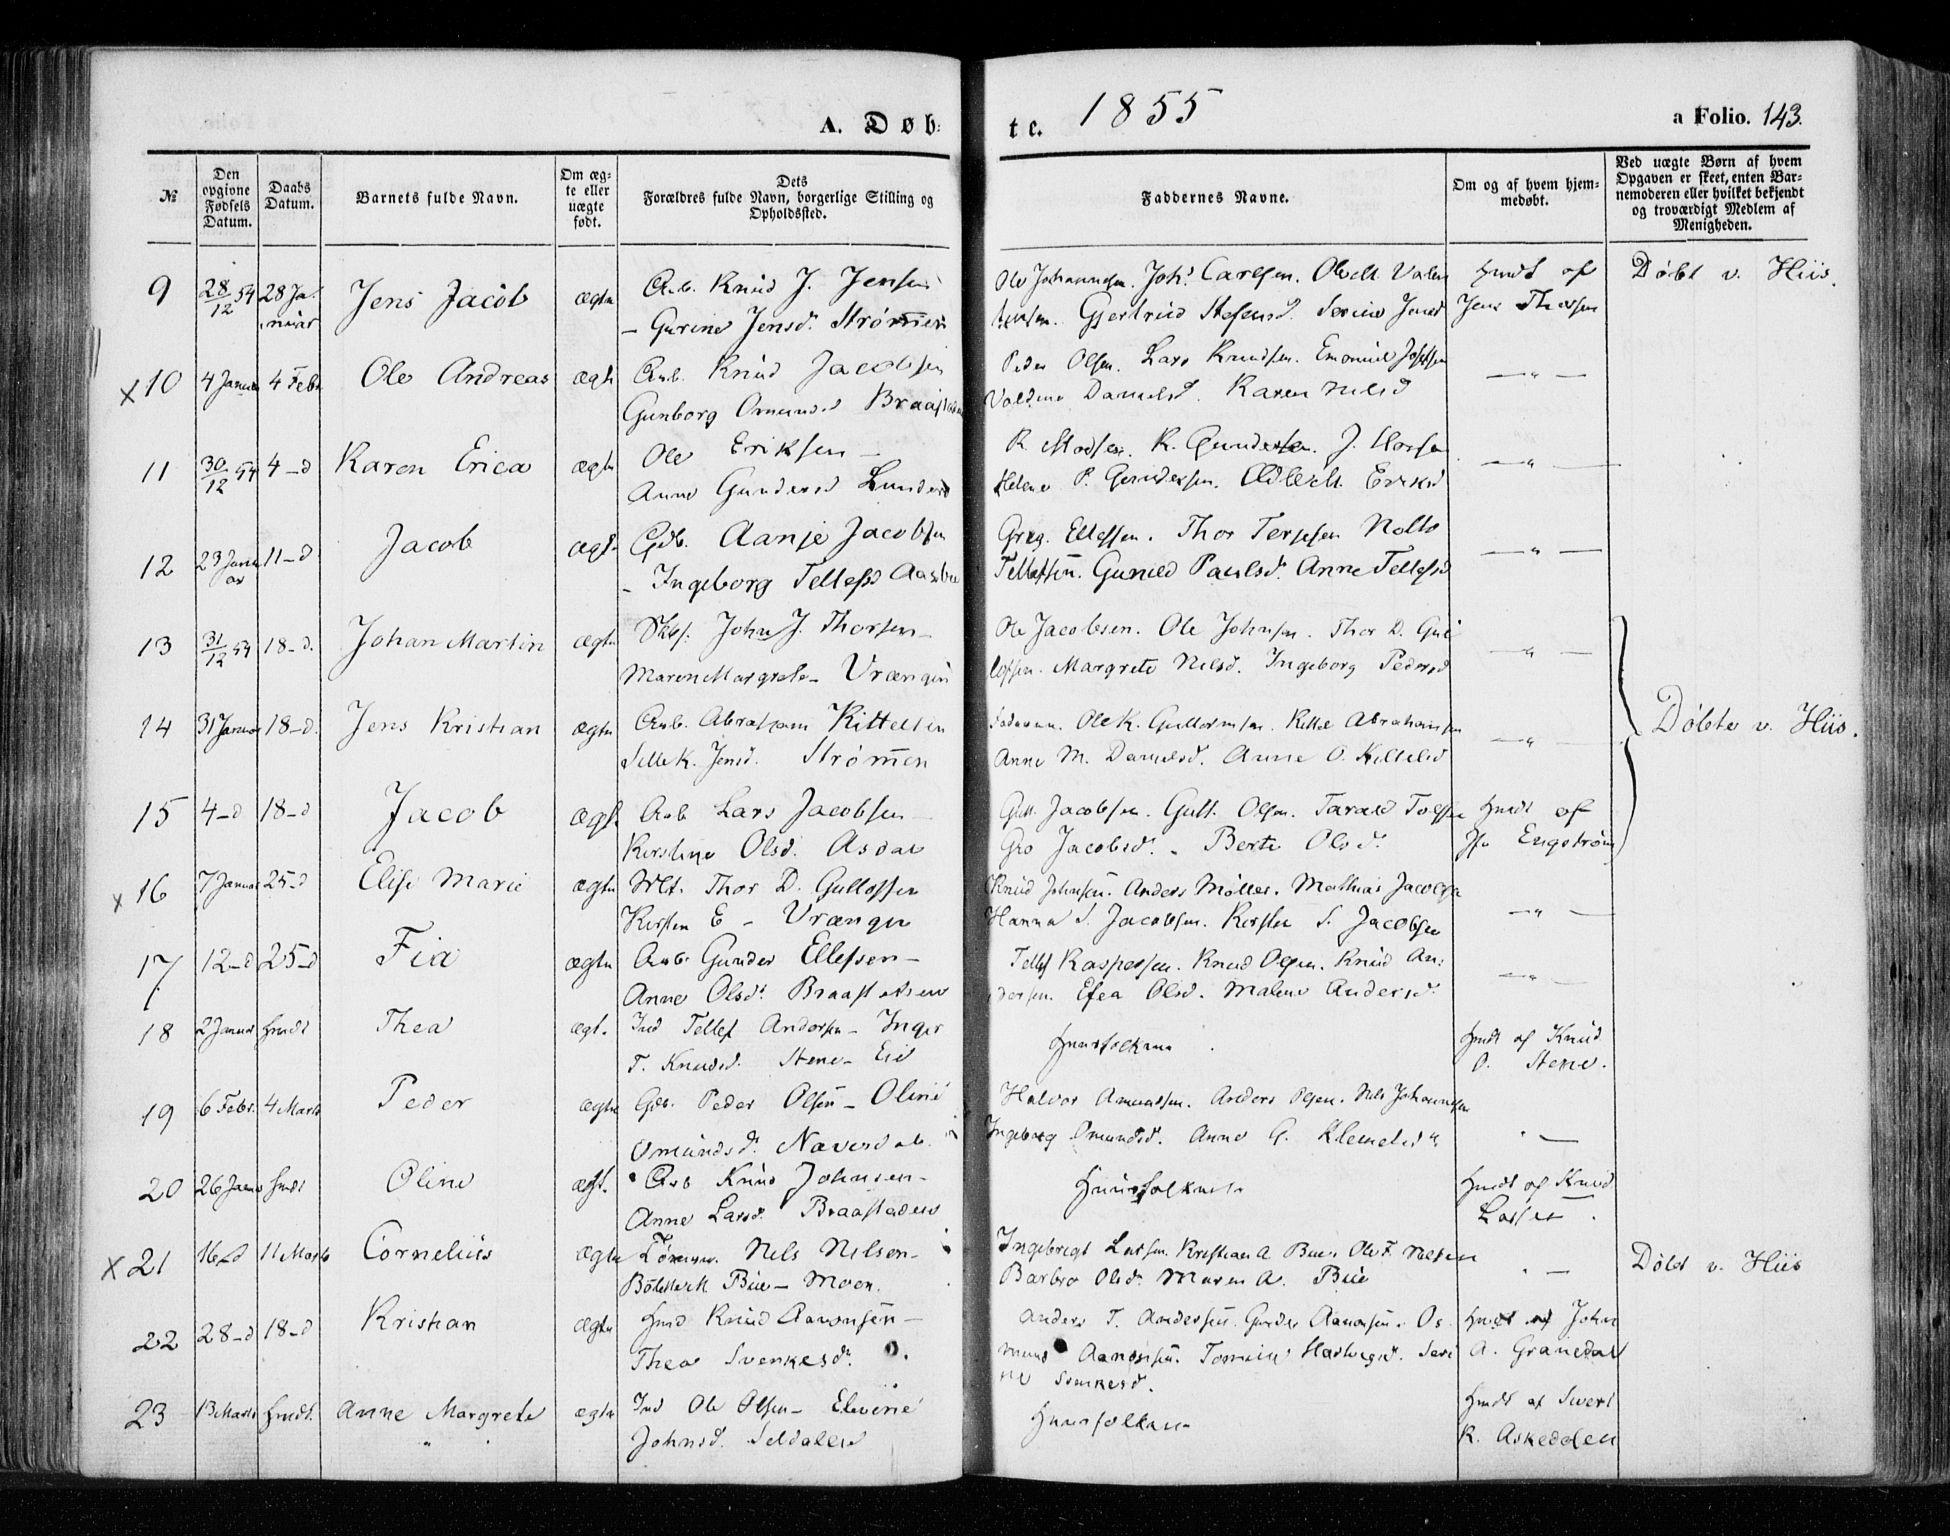 A. Døb=
te. 1855
a Folio. 143.
№
Den opgivne Fødsels Datum.
Daabs Datum.
Barnets fulde Navn.
Om ægte eller uægte født.
Dets Forældres fulde Navn, borgerlige Stilling og Opholdssted.
Faddernes Navne.
Om og af hvem hjemmedøbt.
Ved uægte Børn af hvem Opgaven er skeet, enten Barnemoderen eller hvilket bekjendt og troværdigt Medlem af Menigheden.
9 28/12 54 28 Januar Jens Jacob ægte Arb. Knud J. Jensen Ole Johannesen. Johs. Carlsen. Hmdt af Døbt v. Hiis.
– Gurine Jensd. Strømen Gjertrud Jens Thorsen
x 10 4 Januar 4 Febr Ole Andreas ægte Arb. Knud Jacobsen Peder Olsen. Lars Knudsen. Emanuel — " —
Gunborg Omunds Danielsd. Karen Nilsd
11 30/12 54 4 – d Karen Erica ægte Ole Eriksen – R. Gundersen. J. — " —
Anne Gundersd Helene P. Gundersen. Eriksd
12 23 Januar 11 – d Jacob ægte Gdb. Aanje Jacobsen Greg. Ellefsen. Thor Terjesen — " —
– Ingeborg Tellefsd Tellefsen. Gunild Paulsd. Anne Tellefsd
13 31/12 54 18 – d. Johan Martin ægte John J. Thorsen – Ole Jacobsen. Ole Johnsen. Thor D. Gul — " —
Maren Margrete – Vrængen lofsen. Margrete Nilsd. Ingeborg Pedersd
14 31 Januar 18 – d. Jens Kristian ægte Arb. Abraham Kittelsen Ole K. Gullormsen. Kittel Abrahamsen — " — Døbte v. Hiis.
K. Jensd. Strømen Anne M. Danielsd. Anne O. Kittelsd
15 4 – d 18 – d Jacob ægte Arb Lars Jacobsen – Gutt. Jacobsen. Gutt. Olsen. Hmdt af
Kirstine Olsd. Asdal Gro Jacobsd. – Berte Olsd. Engstrøm
x 16 7 Januar 25 – d Elise Marie ægte Thor D. Gullofsen Knud Johnsen. Anders Møller. Mathias Jacobsen — " —
Kirsten E – Vrængen Hanna S. Jacobsen. Kirsten S. Jacobsen
17 12 – d 25 – d Fia ægte Arb. Gunder Ellefsen – Tellef Kaspersen. Knud Olsen. Knud An: — " —
Anne Olsd. Braastaden dersen. Olsd. Malene Andersd.
18 2 Januar Hmdt Thea ægt. Ind Tellef Andersen – Inger Huusfolkene. Hmdt af Knud
T. Knudsd. Stene – Eie O. Stene.
19 6 Febr. 4 Marts Peder ægte Gdb. Peder Olsen – Oline Halvor Amundsen. Anders Olsen. Nils Johannesen
Omundsd. Navesdal Ingeborg Omundsd. Anne G. " —
20 26 Januar Hmdt Oline ægt. Arb Knud Johnsen – Huusfolkene Hmdt af Knud
Anne Larsd. Braastaden Larsen.
x 21 16 – d 11 Marts Cornelius ægte Nils Nilsen – Ingebrigt Larsen. Kristian A Bue. Ole F. Nilsen " — Døbt v. Hiis
Bue – Moen. Barbro Olsd. Maren A. Bue
22 28 – d 18 – d Kristian ægte Hmd Knud Aanonsen – Anders T. Andersen. Gunder Aanonsen. Os Hmdt af John
Thea Svenkesd. mund Aanonsen. Seri A. Granedal
ne Svenkesd.
23 13 Marts Hmdt. Anne Margrete ægte Ind Ole Olsen – Elevine Huusfolkene Hmdt af Sivert
Johnsd. Seldalen K. Askedalen